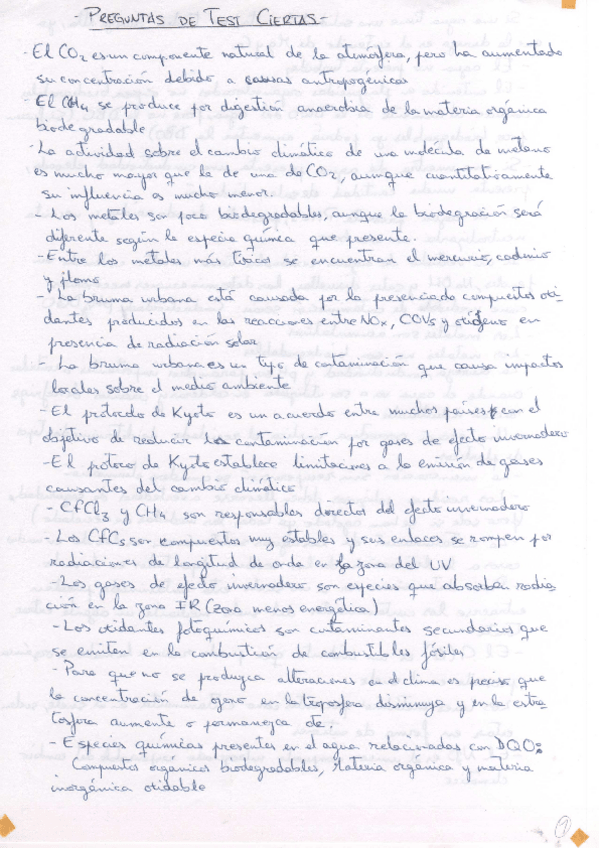 - PREGUNTAS DE TEST CIERTAS -
- El CO2 es un componente natural de la atmósfera, pero ha aumentado
su concentración debido a causas antropogénicas
- El CH4 se produce por digestión anaerobia de la materia orgánica
biodegradable
- La actividad sobre el cambio climático de una molécula de metano
es mucho mayor que la de una de CO2, aunque cuantitativamente
su influencia es mucho menor.
- Los metales son poco biodegradables, aunque la biodegración será
diferente según la especie química que presente.
- Entre los metales más tóxicos se encuentran el mercurio, cadmio
y plomo
- La bruma urbana está causada por la presencia de compuestos oxi-
dantes producidos en las reacciones entre NOx, COVs y oxígeno en
presencia de radiación solar
- La bruma urbana es un tipo de contaminación que causa impactos
locales sobre el medio ambiente
- El protocolo de Kyoto es un acuerdo entre muchos países con el
objetivo de reducir la contaminación por gases de efecto invernadero
- El protoco de Kyoto establece limitaciones a la emisión de gases
causantes del cambio climático
- CFCl3 y CH4 son responsables directos del efecto invernadero
- Los CFCs son compuestos muy estables y sus enlaces se rompen por
radiaciones de longitud de onda en la zona del UV
- Los gases de efecto invernadero son especies que absorben radia-
ción en la zona IR (zona menos energética)
- Los oxidantes fotoquímicos son contaminantes secundarios que
se emiten en la combustión de combustibles fósiles
- Para que no se produzca alteraciones en el clima es preciso que
la concentración de ozono en la troposfera disminuya y en la estra-
tosfera aumente o permanezca cte.
- Especies químicas presentes en el agua relacionadas con DQO:
Compuestos orgánicos biodegradables, Materia orgánica y materia
inorgánica oxidable
1